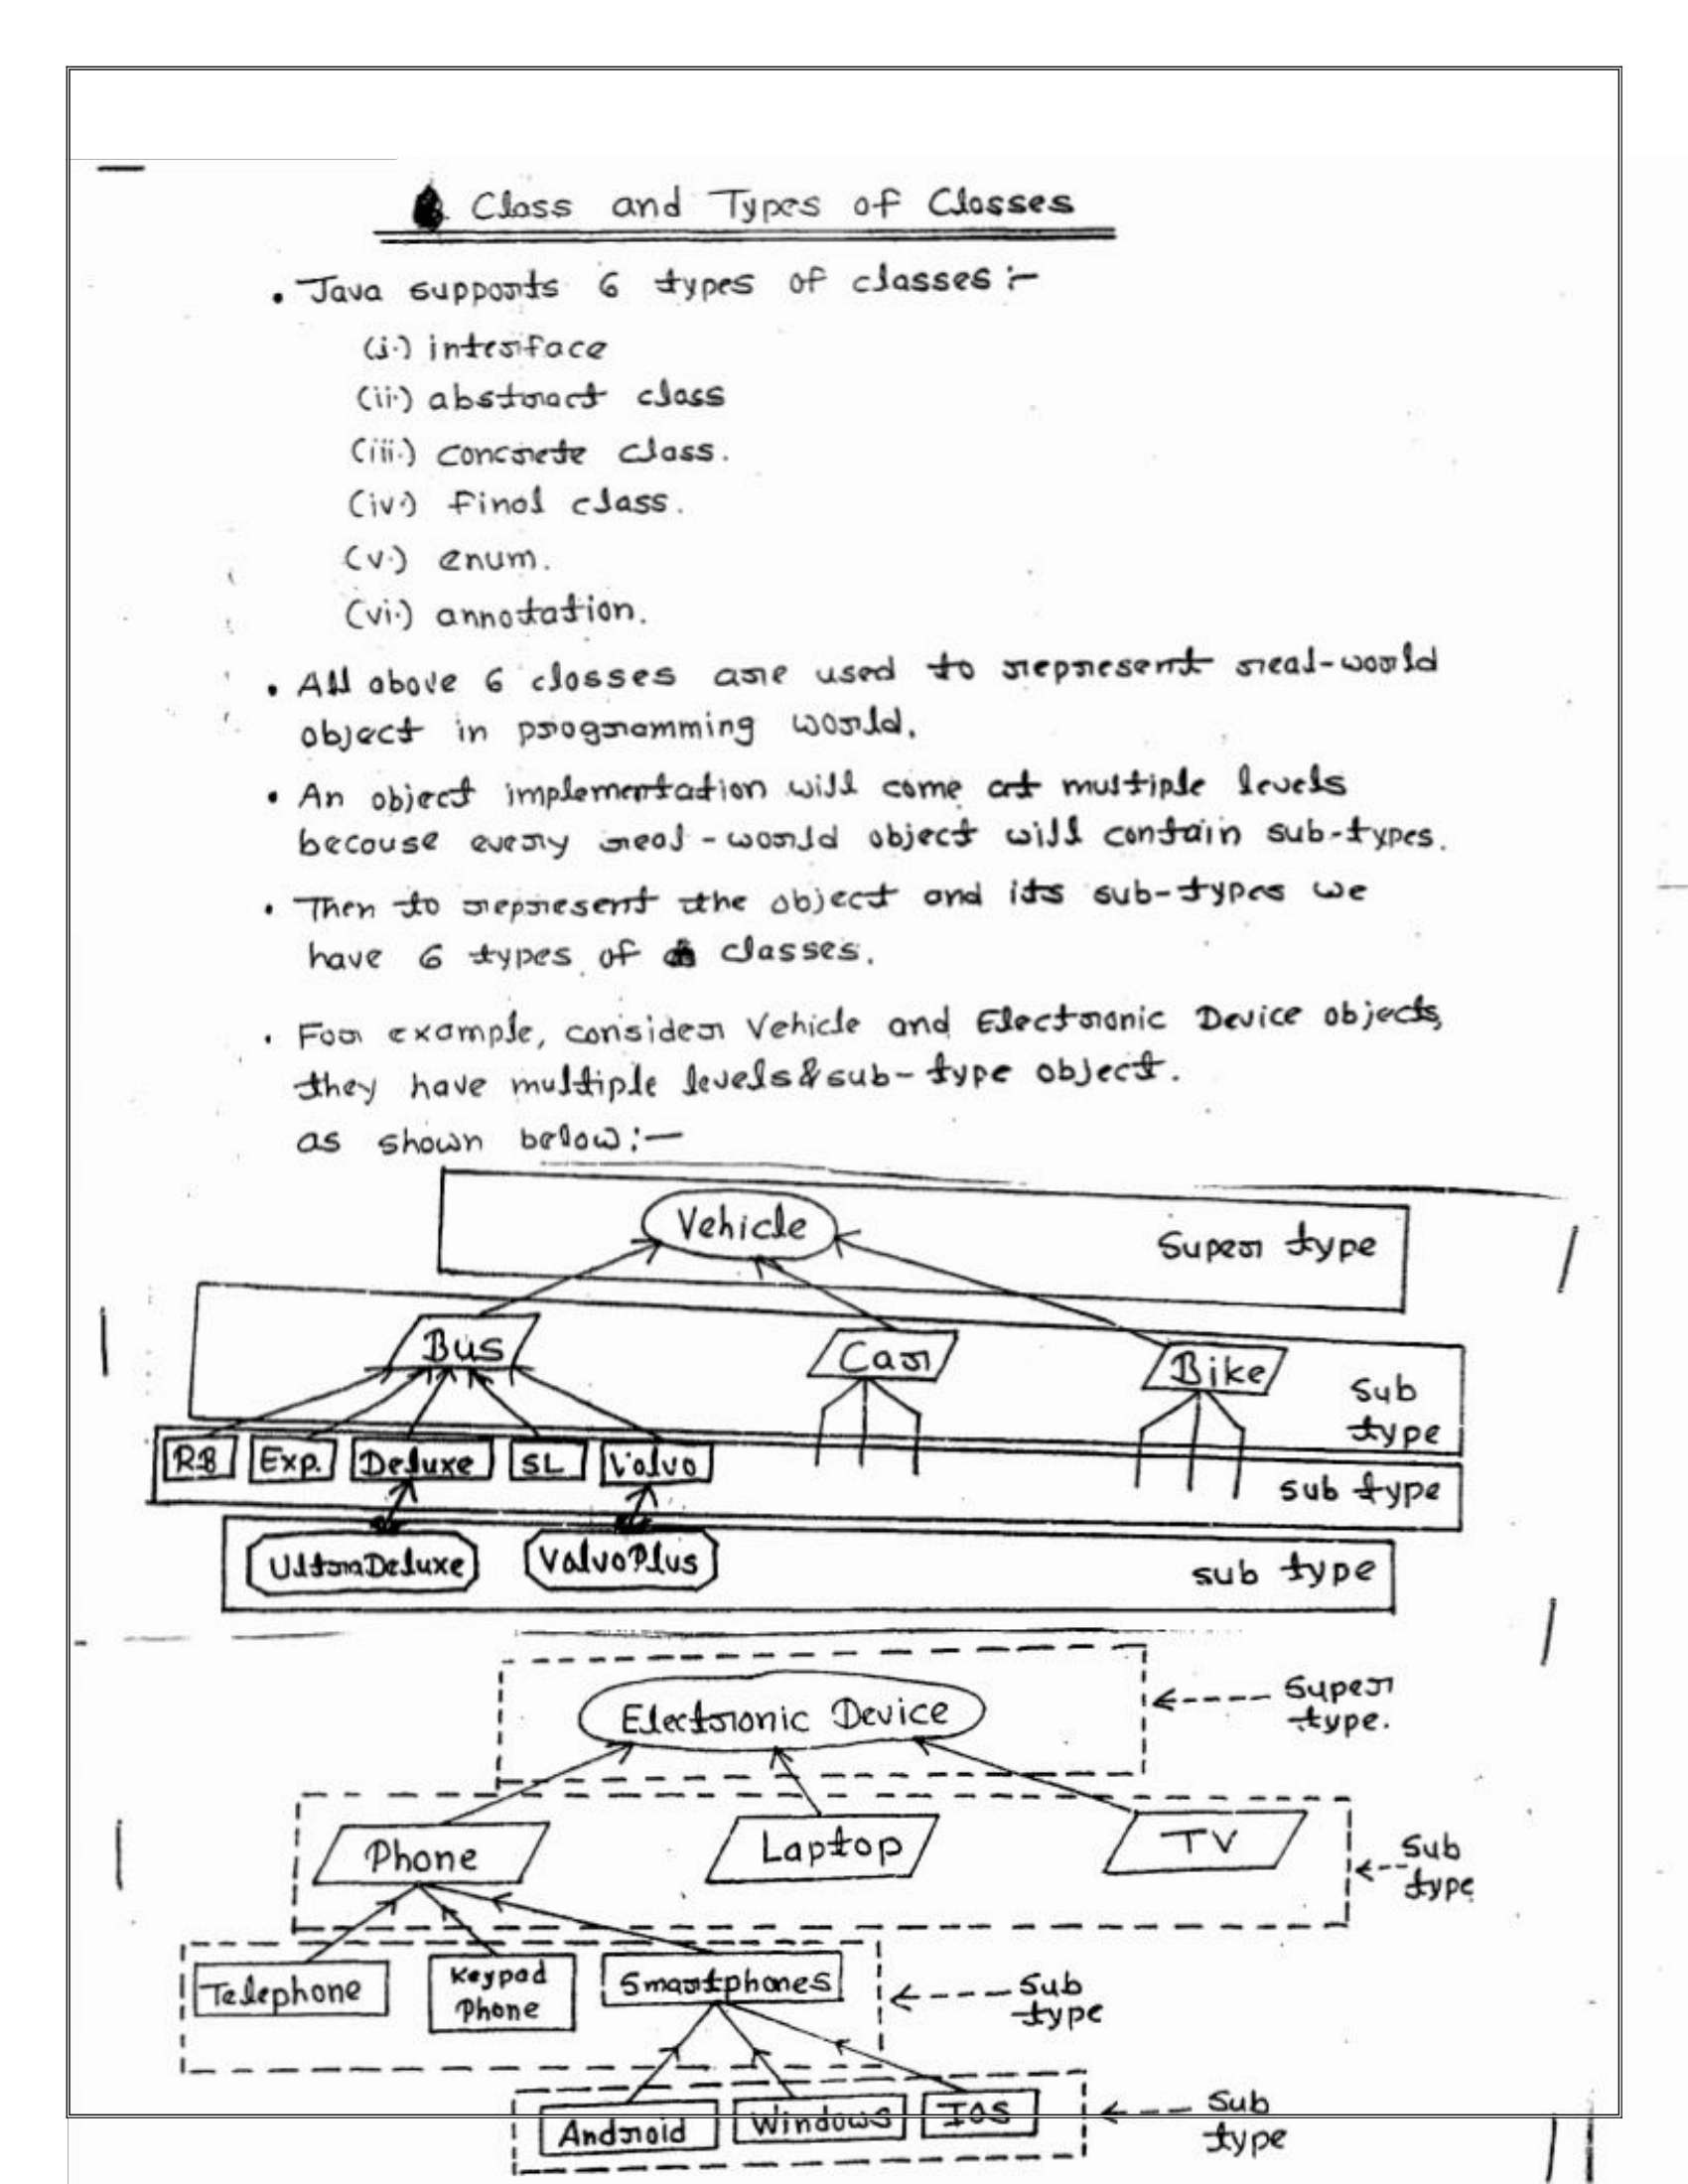 Class and Types of Classes
• Java supports 6 types of classes :-
(i.) interface
(ii.) abstract class
(iii.) concrete class.
(iv.) final class.
(v.) enum.
(vi.) annotation.
• All above 6 classes are used to represent real-world
object in programming world.
• An object implementation will come at multiple levels
because every real-world object will contain sub-types.
• Then to represent the object and its sub-types we
have 6 types of classes.
• For example, consider Vehicle and Electronic Device objects,
they have multiple levels & sub-type object.
as shown below:-
Vehicle
Super type
Bus
Car
Bike
Sub
type
RB
Exp.
Deluxe
SL
Volvo
sub type
UltraDeluxe
ValvoPlus
sub type
Electronic Device
Super
type.
Phone
Laptop
TV
Sub
type
Telephone
Keypad
Phone
Smartphones
Sub
type
Android
Windows
IOS
Sub
type